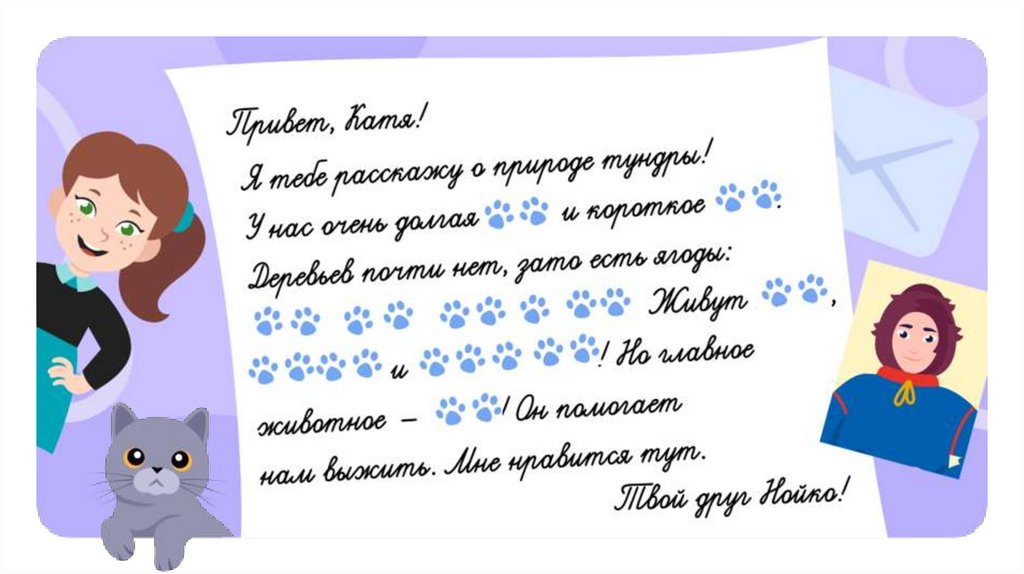 Привет, Катя!
Я тебе расскажу о природе тундры!
У нас очень долгая и короткое .
Деревьев почти нет, зато есть ягоды:
Живут ,
и ! Но главное
животное – ! Он помогает
нам выжить. Мне нравится тут.
Твой друг Нойко!